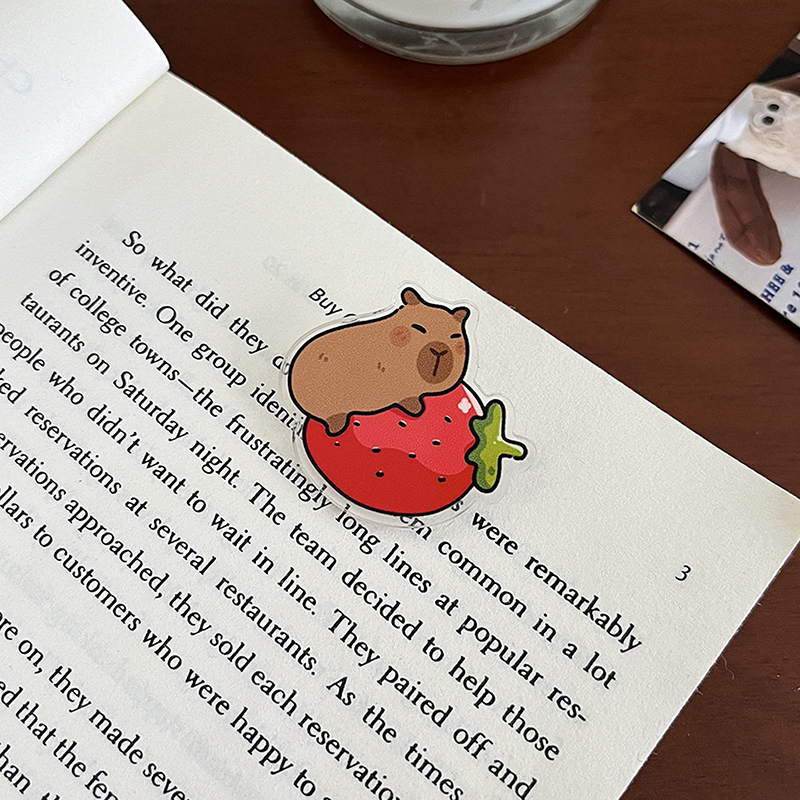 Buy
3
So what did they do
were remarkably
inventive. One group identi
em common in a lot
of college towns—the frustratingly long lines at popular res-
taurants on Saturday night. The team decided to help those
people who didn't want to wait in line. They paired off and
ked reservations at several restaurants. As the times
ervations approached, they sold each reservation
llars to customers who were happy to
re on, they made seve
ed that the fe
han
1
HHH&